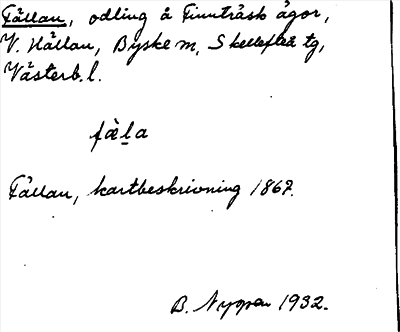 Fällan, odling å Finnträsk ägor,
V. Hällan, Byske sn, Skellefteå tg,
Västerb. l.
fäḷa
Fällan, kartbeskrivning 1867.
B. Nygren 1932.